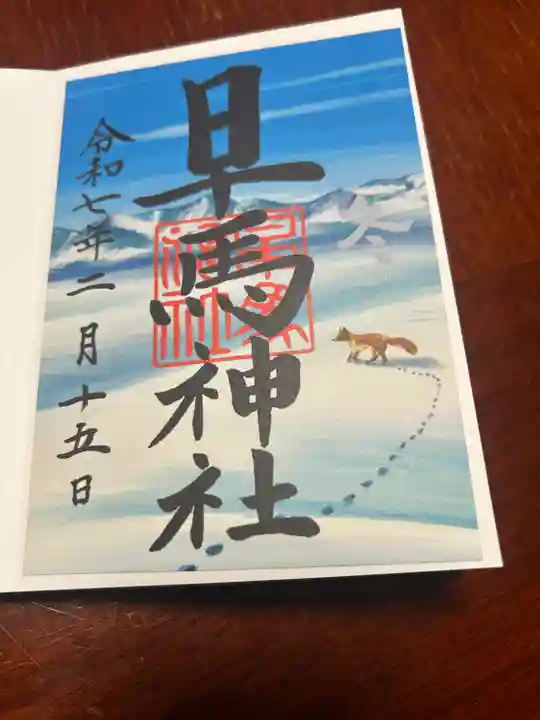 早馬神社
冬
令和七年二月十五日